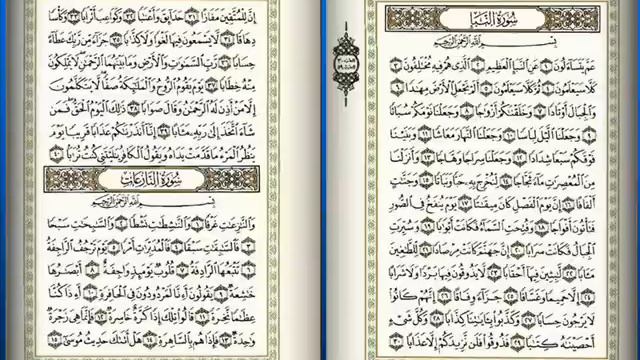 سُورَةُ النَّبَإِ
بِسْمِ اللَّهِ الرَّحْمَٰنِ الرَّحِيمِ
عَمَّ يَتَسَآءَلُونَ ١ عَنِ النَّبَإِ الْعَظِيمِ ٢ الَّذِي هُمْ فِيهِ مُخْتَلِفُونَ ٣
كَلَّا سَيَعْلَمُونَ ٤ ثُمَّ كَلَّا سَيَعْلَمُونَ ٥ أَلَمْ نَجْعَلِ الْأَرْضَ مِهَٰدًا ٦
وَالْجِبَالَ أَوْتَادًا ٧ وَخَلَقْنَٰكُمْ أَزْوَٰجًا ٨ وَجَعَلْنَا نَوْمَكُمْ سُبَاتًا
٩ وَجَعَلْنَا الَّيْلَ لِبَاسًا ١٠ وَجَعَلْنَا النَّهَارَ مَعَاشًا ١١ وَبَنَيْنَا
فَوْقَكُمْ سَبْعًا شِدَادًا ١٢ وَجَعَلْنَا سِرَاجًا وَهَّاجًا ١٣ وَأَنزَلْنَا
مِنَ الْمُعْصِرَٰتِ مَآءً ثَجَّاجًا ١٤ لِّنُخْرِجَ بِهِ حَبًّا وَنَبَاتًا ١٥ وَجَنَّٰتٍ
أَلْفَافًا ١٦ إِنَّ يَوْمَ الْفَصْلِ كَانَ مِيقَٰتًا ١٧ يَوْمَ يُنفَخُ فِي الصُّورِ
فَتَأْتُونَ أَفْوَاجًا ١٨ وَفُتِحَتِ السَّمَآءُ فَكَانَتْ أَبْوَٰبًا ١٩ وَسُيِّرَتِ
الْجِبَالُ فَكَانَتْ سَرَابًا ٢٠ إِنَّ جَهَنَّمَ كَانَتْ مِرْصَادًا ٢١ لِّلطَّٰغِينَ
مَـَٔابًا ٢٢ لَّٰبِثِينَ فِيهَآ أَحْقَابًا ٢٣ لَّا يَذُوقُونَ فِيهَا بَرْدًا وَلَا شَرَابًا
٢٤ إِلَّا حَمِيمًا وَغَسَّاقًا ٢٥ جَزَآءً وِفَاقًا ٢٦ إِنَّهُمْ كَانُوا
لَا يَرْجُونَ حِسَابًا ٢٧ وَكَذَّبُوا بِـَٔايَٰتِنَا كِذَّابًا ٢٨ وَكُلَّ شَيْءٍ
أَحْصَيْنَٰهُ كِتَٰبًا ٢٩ فَذُوقُوا فَلَن نَّزِيدَكُمْ إِلَّا عَذَابًا ٣٠
إِنَّ لِلْمُتَّقِينَ مَفَازًا ٣١ حَدَآئِقَ وَأَعْنَٰبًا ٣٢ وَكَوَاعِبَ أَتْرَابًا ٣٣ وَكَأْسًا
دِهَاقًا ٣٤ لَّا يَسْمَعُونَ فِيهَا لَغْوًا وَلَا كِذَّٰبًا ٣٥ جَزَآءً مِّن رَّبِّكَ عَطَآءً
حِسَابًا ٣٦ رَّبِّ السَّمَٰوَٰتِ وَالْأَرْضِ وَمَا بَيْنَهُمَا الرَّحْمَٰنِ لَا يَمْلِكُونَ
مِنْهُ خِطَابًا ٣٧ يَوْمَ يَقُومُ الرُّوحُ وَالْمَلَٰٓئِكَةُ صَفًّا لَّا يَتَكَلَّمُونَ
إِلَّا مَنْ أَذِنَ لَهُ الرَّحْمَٰنُ وَقَالَ صَوَابًا ٣٨ ذَٰلِكَ الْيَوْمُ الْحَقُّ فَمَن
شَآءَ اتَّخَذَ إِلَىٰ رَبِّهِ مَـَٔابًا ٣٩ إِنَّآ أَنذَرْنَٰكُمْ عَذَابًا قَرِيبًا يَوْمَ
يَنظُرُ الْمَرْءُ مَا قَدَّمَتْ يَدَاهُ وَيَقُولُ الْكَافِرُ يَٰلَيْتَنِي كُنتُ تُرَٰبًا ٤٠
سُورَةُ النَّازِعَاتِ
بِسْمِ اللَّهِ الرَّحْمَٰنِ الرَّحِيمِ
وَالنَّٰزِعَٰتِ غَرْقًا ١ وَالنَّٰشِطَٰتِ نَشْطًا ٢ وَالسَّٰبِحَٰتِ سَبْحًا
٣ فَالسَّٰبِقَٰتِ سَبْقًا ٤ فَالْمُدَبِّرَٰتِ أَمْرًا ٥ يَوْمَ تَرْجُفُ الرَّاجِفَةُ
٦ تَتْبَعُهَا الرَّادِفَةُ ٧ قُلُوبٌ يَوْمَئِذٍ وَاجِفَةٌ ٨ أَبْصَٰرُهَا
خَٰشِعَةٌ ٩ يَقُولُونَ أَءِنَّا لَمَرْدُودُونَ فِي الْحَافِرَةِ ١٠ أَءِذَا كُنَّا
عِظَٰمًا نَّخِرَةً ١١ قَالُوا تِلْكَ إِذًا كَرَّةٌ خَاسِرَةٌ ١٢ فَإِنَّمَا هِيَ زَجْرَةٌ
وَٰحِدَةٌ ١٣ فَإِذَا هُم بِالسَّاهِرَةِ ١٤ هَلْ أَتَىٰكَ حَدِيثُ مُوسَىٰٓ ١٥